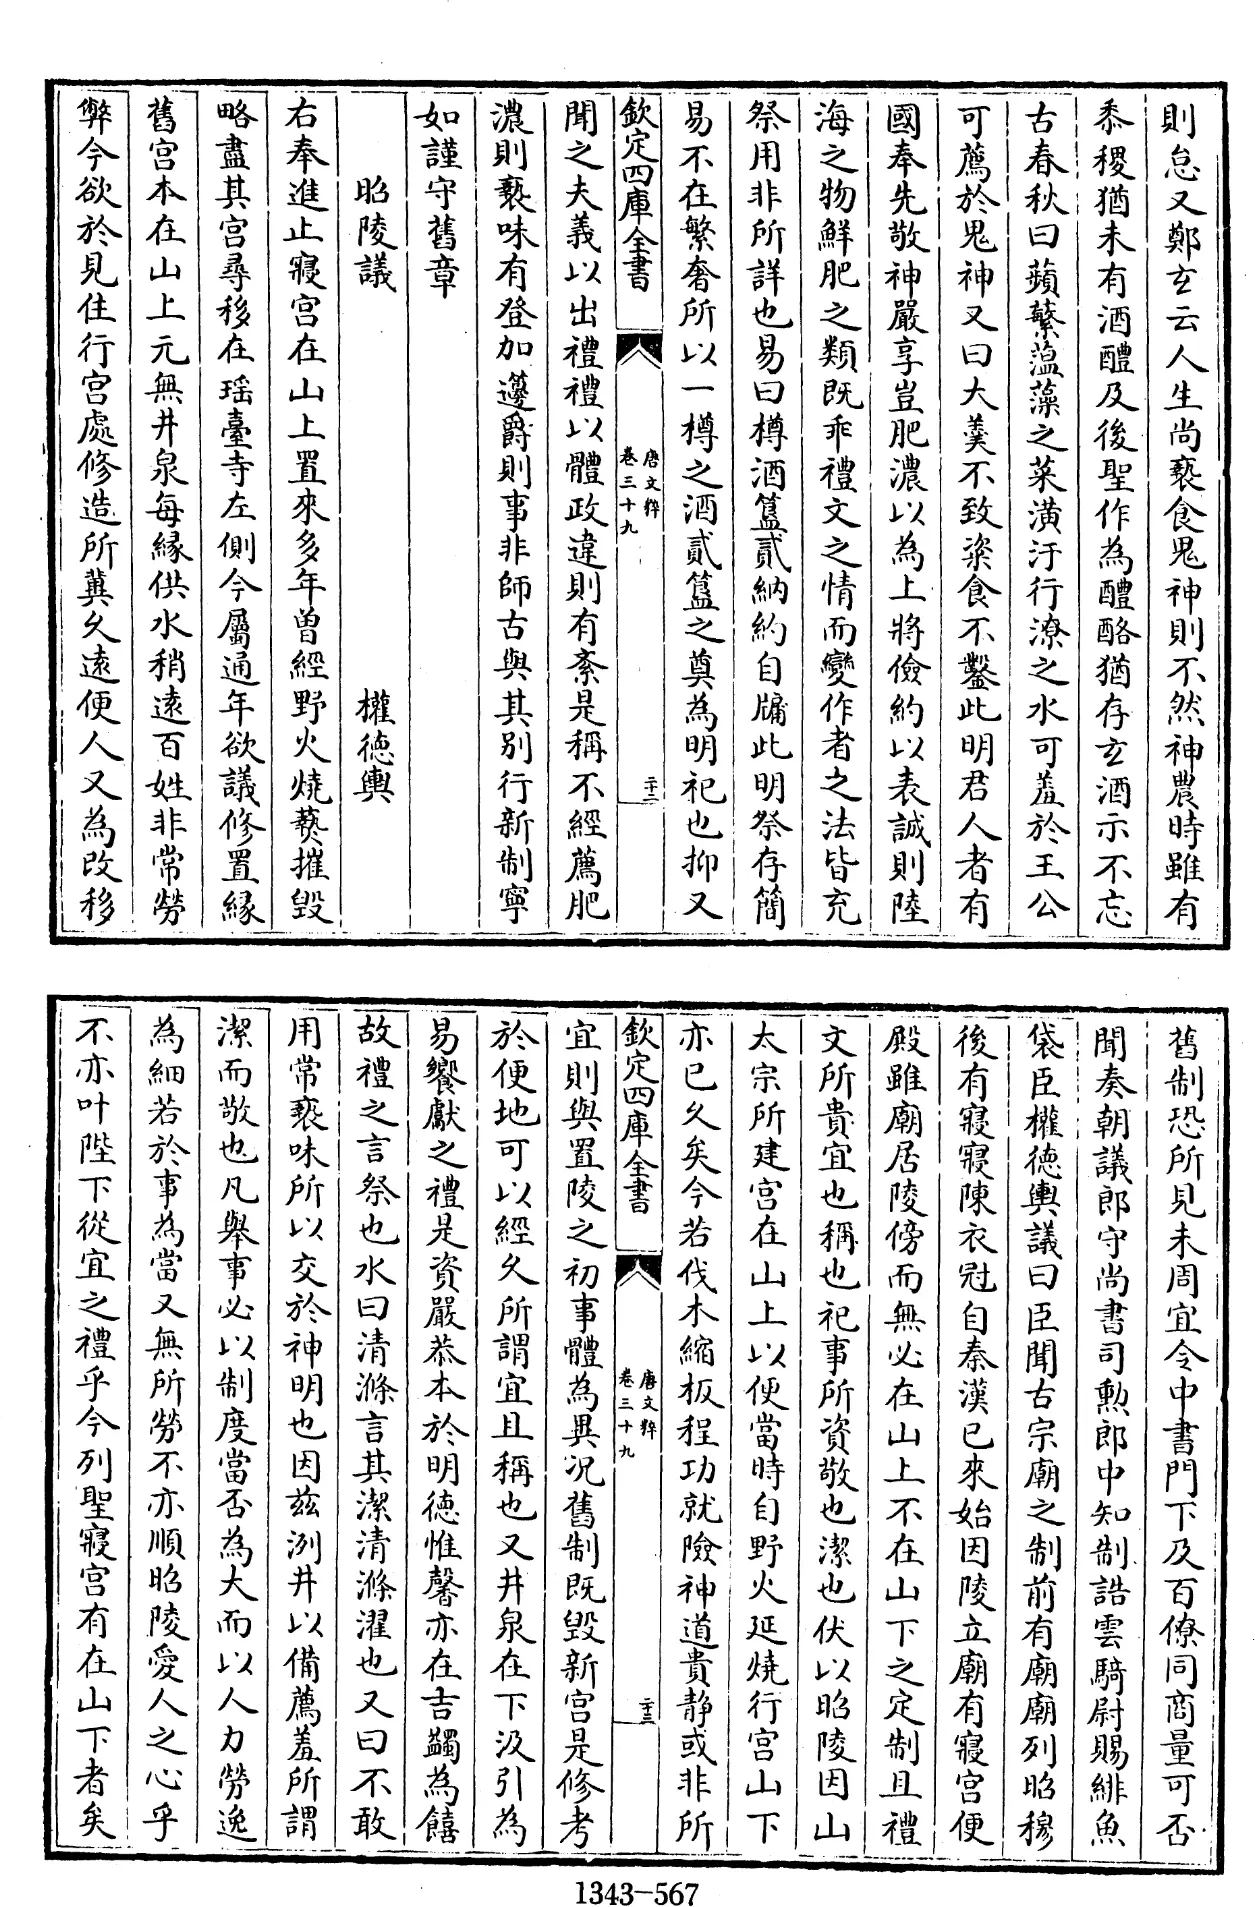 則怠又鄭玄云人生尚褻食鬼神則不然神農時雖有
黍稷猶未有酒醴及後聖作為醴酪猶存玄酒示不忘
古春秋曰蘋蘩薀藻之菜潢汙行潦之水可羞於王公
可薦於鬼神又曰大羹不致粢食不鑿此明君人者有
國奉先敬神嚴享豈肥濃以為上將儉約以表誠則陸
海之物鮮肥之類既乖禮文之情而變作者之法皆充
祭用非所詳也易曰樽酒簋貳納約自牖此明祭存簡
易不在繁奢所以一樽之酒貳簋之奠為明祀也抑又
欽定四庫全書
唐文粹
卷三十九
二十二
聞之夫義以出禮禮以體政違則有紊是稱不經薦肥
濃則褻味有登加籩爵則事非師古與其別行新制寧
如謹守舊章
昭陵議
權德輿
右奉進止寢宮在山上置來多年曾經野火燒爇摧毀
略盡其宮尋移在瑶臺寺左側今屬通年欲議修置緣
舊宮本在山上元無井泉每緣供水稍遠百姓非常勞
弊今欲於見住行宮處修造所冀久遠便人又為改移
舊制恐所見未周宜令中書門下及百僚同商量可否
聞奏朝議郎守尚書司勲郎中知制誥雲騎尉賜緋魚
袋臣權德輿議曰臣聞古宗廟之制前有廟廟列昭穆
後有寢寢陳衣冠自秦漢已來始因陵立廟有寢宮便
殿雖廟居陵傍而無必在山上不在山下之定制且禮
文所貴宜也稱也祀事所資敬也潔也伏以昭陵因山
太宗所建宮在山上以便當時自野火延燒行宮山下
亦已久矣今若伐木縮板程功就險神道貴静或非所
欽定四庫全書
唐文粹
卷三十九
二十三
宜則與置陵之初事體為異況舊制既毀新宮是修考
於便地可以經久所謂宜且稱也又井泉在下汲引為
易饗獻之禮是資嚴恭本於明德惟馨亦在吉蠲為饎
故禮之言祭也水曰清滌言其潔清滌濯也又曰不敢
用常褻味所以交於神明也因兹洌井以備薦羞所謂
潔而敬也凡舉事必以制度當否為大而以人力勞逸
為細若於事為當又無所勞不亦順昭陵愛人之心乎
不亦叶陛下從宜之禮乎今列聖寢宮有在山下者矣
1343-567